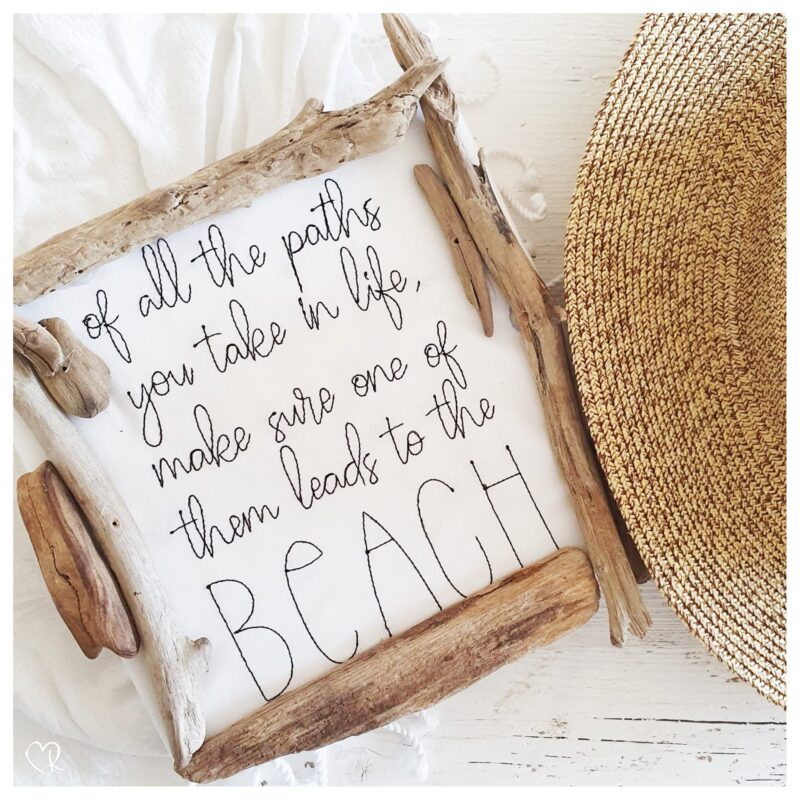 of all the paths
you take in life,
make sure one of
them leads to the
BeACH
R